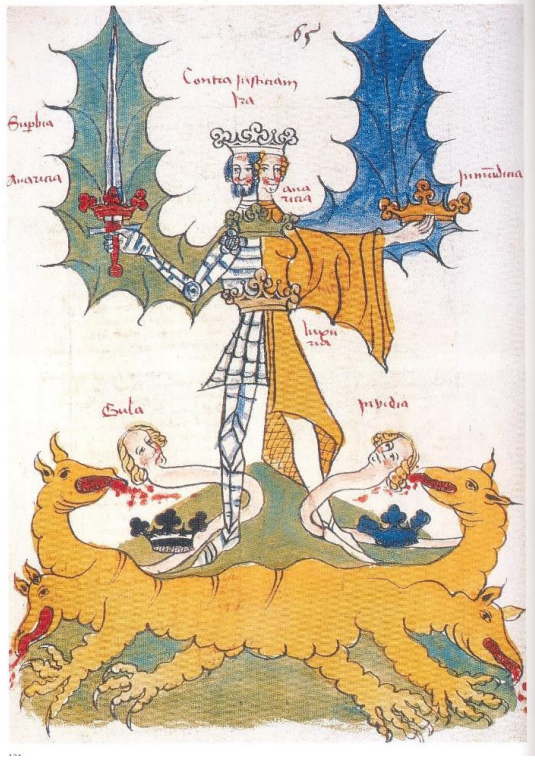 65
Contra justiciam
Ira
Supbia
Avaricia
ava
ricia
luxu
ria
Gula
invidia
131